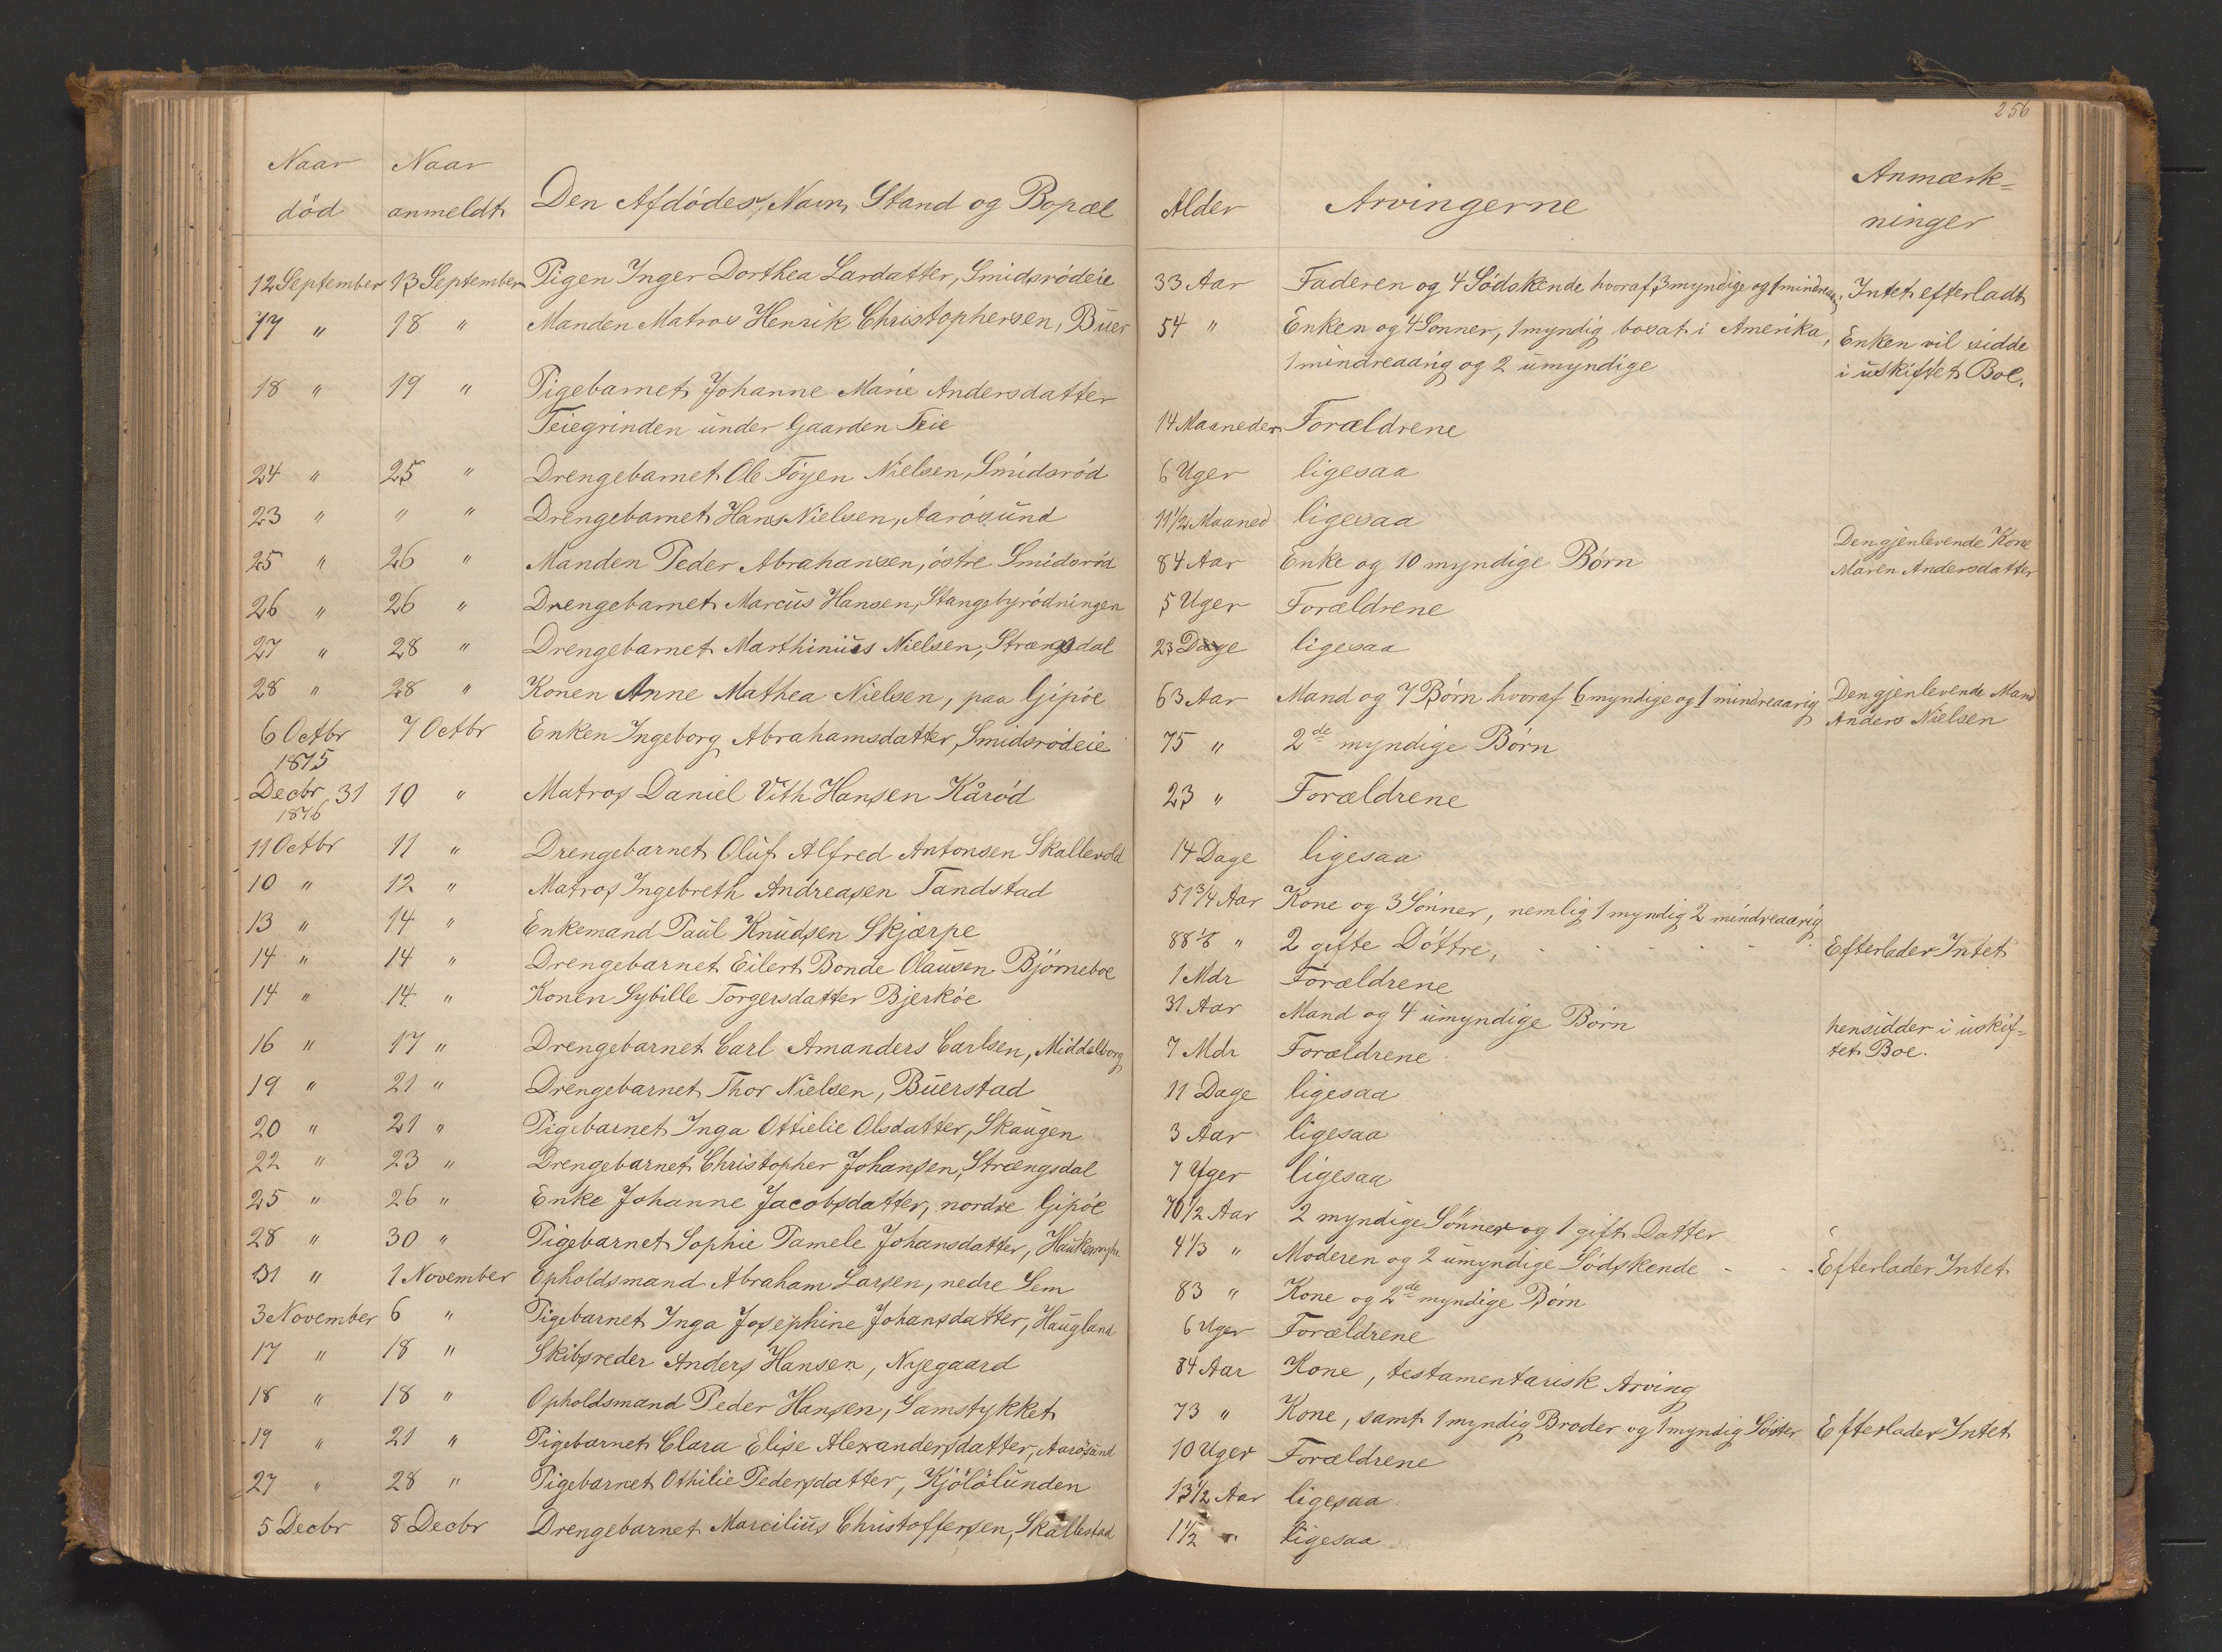 256
Naar død
Naar anmeldt
Den Afdödes, Navn, Stand og Bopæl
Alder
Arvingerne
Anmærk=
ninger
12 September 13 September Pigen Inger Dorthea Larsdatter, Smidsrödeie 33 Aar Faderen og 4 Södskende hvoraf 3 myndige og 1 mindreaa. Intet efterladt
17 " 18 " Manden Matros Henrik Christophersen, Buer 54 " Enken og 4 Sönner, 1 myndig bosat i Amerika, Enken vil sidde
1 mindreaarig og 2 umyndige i uskiftet Boe.
18 " 19 " Pigebarnet Johanne Marie Andersdatter
Teiegrinden under Gaarden Teie 14 Maaneder Forældrene
24 " 25 " Drengebarnet Ole Föyen Nielsen, Smidsröd 6 Uger ligesaa
23 " " " Drengebarnet Hans Nielsen, Aarösund 11 1/2 Maaned ligesaa
25 " 26 " Manden Peder Abrahamsen, östre Smidsröd 84 Aar Enke og 10 myndige Börn Den gjenlevende Kone
Maren Andersdatter
26 " 26 " Drengebarnet Marcus Hansen, Stangebyrödningen 5 Uger Forældrene
27 " 28 " Drengebarnet Marthinius Nielsen, Strængsdal 23 Dage ligesaa
28 " 28 " Konen Anne Mathea Nielsen, paa Gipöe 63 Aar Mand og 7 Börn hvoraf 6 myndige og 1 mindreaarig Den gjenlevende Mand
Anders Nielsen
6 Octbr 7 Octbr Enken Ingeborg Abrahamsdatter, Smidsrödeie 75 " 2de myndige Börn
1875
Decbr 31 10 " Matros Daniel Vith Hansen Kåröd 23 " Forældrene
1876
11 Octbr 11 " Drengebarnet Oluf Alfred Antonsen Skallevold 14 Dage ligesaa
10 " 12 " Matros Ingebreth Andreasen Tandstad 51 3/4 Aar Kone og 3 Sönner, nemlig 1 myndig 2 mindreaarig
13 " 14 " Enkemand Paul Knudsen Skjærpe 88 1/8 " 2 gifte Döttre, Efterlader Intet
14 " 14 " Drengebarnet Eilert Bonde Olausen Björneboe 1 Mdr Forældrene
14 " 14 " Konen Sybille Torgersdatter Bjerköe 31 Aar Mand og 4 umyndige Börn hensidder i uskif=
tet Boe.
16 " 17 " Drengebarnet Carl Amanders Carlsen, Middelborg 7 Mdr Forældrene
19 " 21 " Drengebarnet Thor Nielsen, Buerstad 11 Dage ligesaa
20 " 21 " Pigebarnet Inga Ottielie Olsdatter, Skaugen 3 Aar ligesaa
22 " 23 " Drengebarnet Christopher Johansen, Strængsdal 7 Uger ligesaa
25 " 26 " Enke Johanne Jacobsdatter, nordre Gipöe 70 1/2 Aar 2 myndige Sönner og 1 gift Datter
28 " 30 " Pigebarnet Sophie Pamele Johansdatter, 4 1/3 " Moderen og 2 umyndige Södskende Efterlader Intet
31 " 1 November Opholdsmand Abraham Larsen, nedre Sem 83 " Kone og 2de myndige Börn
3 November 6 " Pigebarnet Inga Josephine Johansdatter, Haugland 6 Uger Forældrene
17 " 18 " Skibsreder Anders Hansen, Nyegaard 84 Aar Kone, testamentarisk Arving
18 " 18 " Opholdsmand Peder Hansen, Gamstykket 73 " Kone, samt 1 myndig Broder og 1 myndig Söster Efterlader Intet
19 " 21 " Pigebarnet Clara Elise Alexandersdatter, Aarösund 10 Uger Forældrene
27 " 28 " Pigebarnet Othilie Pedersdatter, Kjölölunden 13 1/2 Aar ligesaa
5 Decbr 8 Decbr Drengebarnet Marcilius Christoffersen, Skallestad 1 1/2 " ligesaa